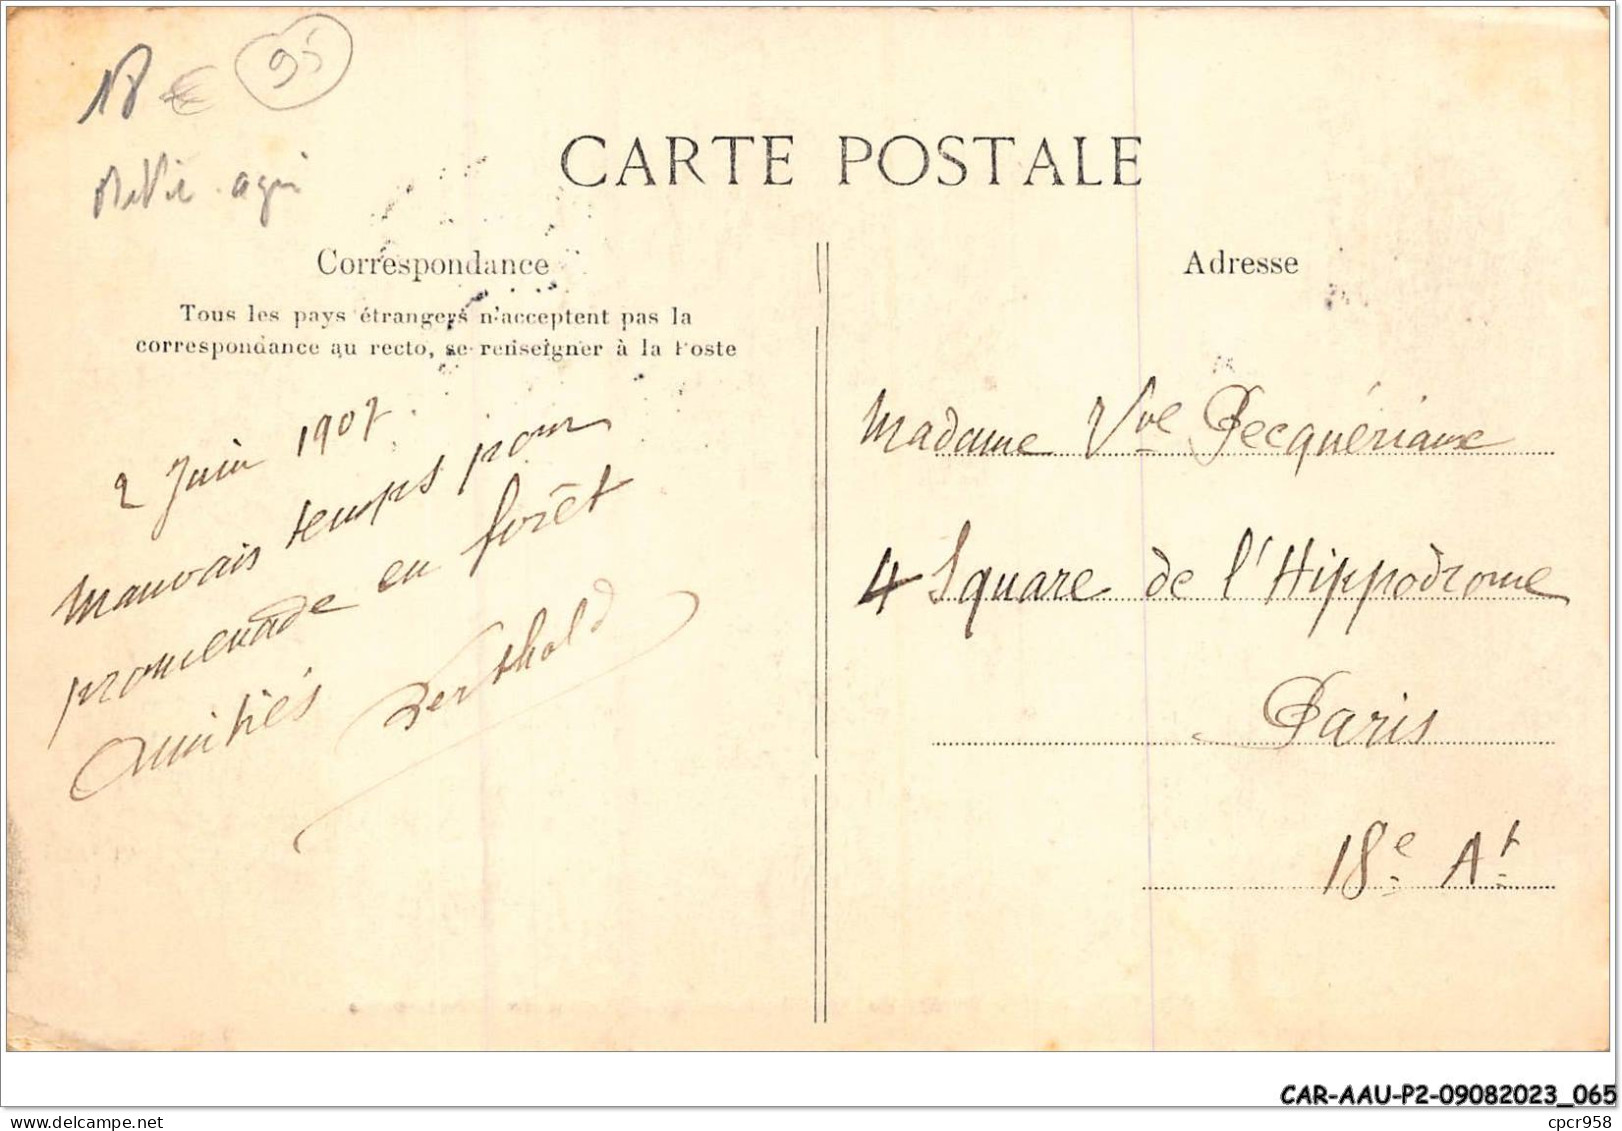 18 € 95
CARTE POSTALE
Correspondance
Tous les pays étrangers n'acceptent pas la
correspondance au recto, se renseigner à la Poste
2 Juin 1907.
Mauvais temps pour
promenade en forêt
Amitiés Berthold
Adresse
Madame Vve Pecquériaux
4 Square de l'Hippodrome
Paris
18e At
CAR-AAU-P2-09082023_065
cpcr958